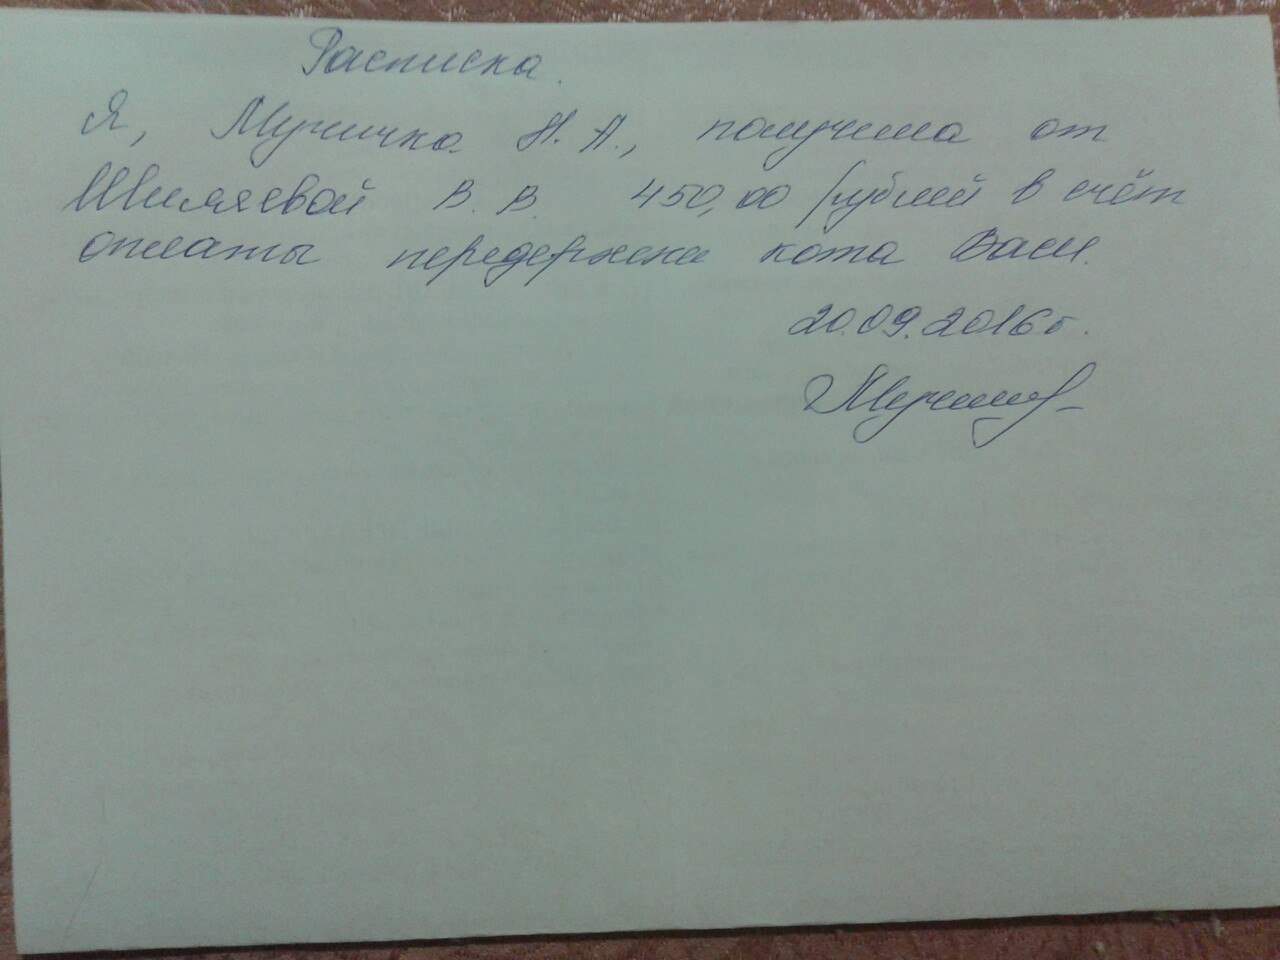 Расписка.
Я, Муничка Н. А., получила от
Шиляевой В. В. 450,00 рублей в счёт
оплаты передержки кота Васи.
20.09.2016г.